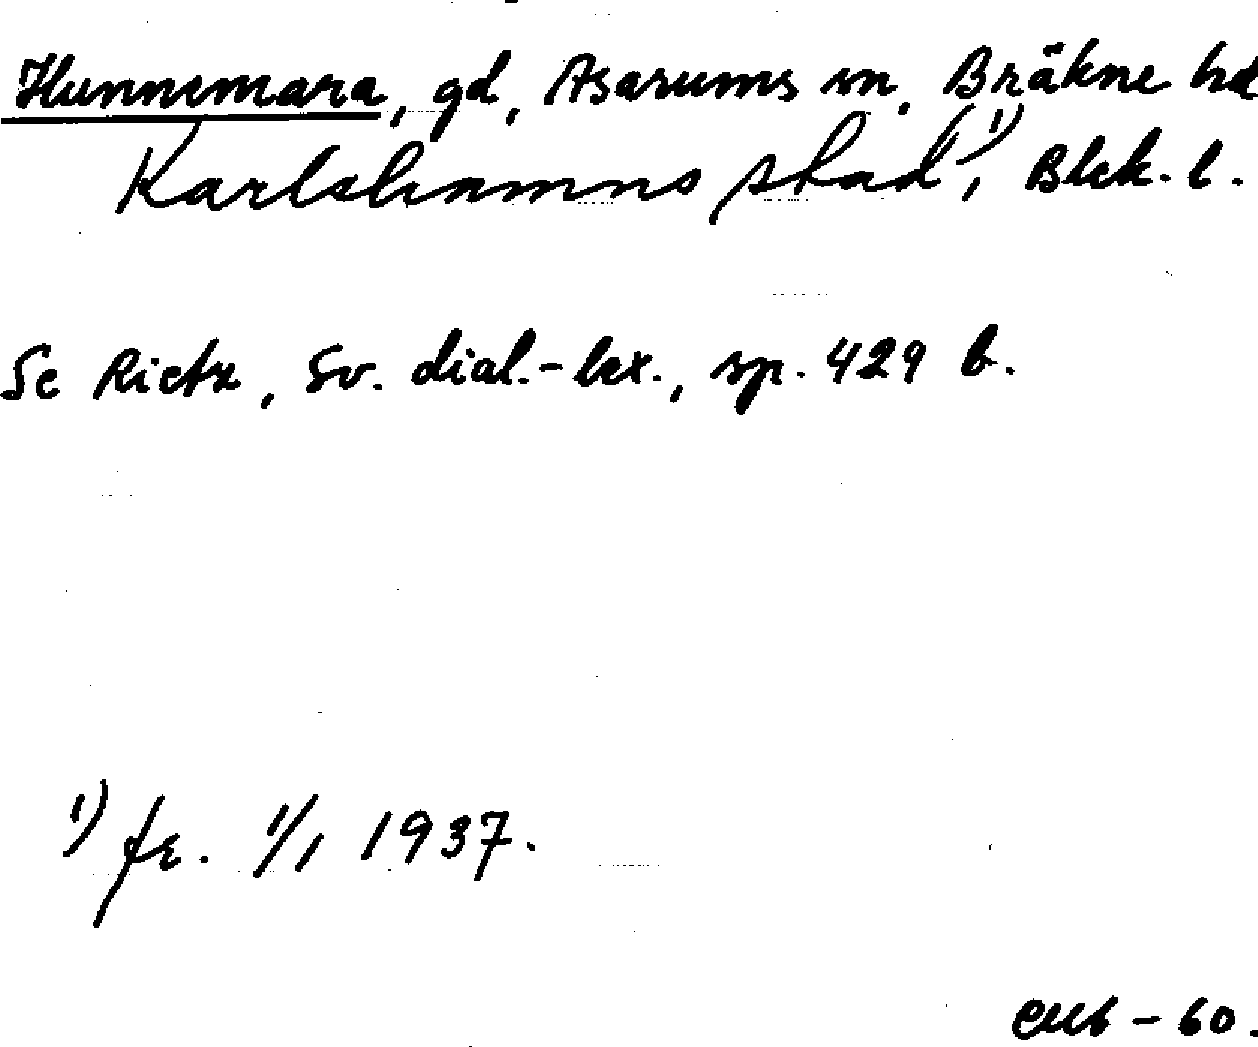 Hunnemara, gd, Asarums sn, Bräkne hd
Karlshamns stad¹⁾, Blek. l.
Se Rietz, Sv. dial.-lex., sp. 429 b.
¹⁾ fr. 1/1 1937.
- 60.